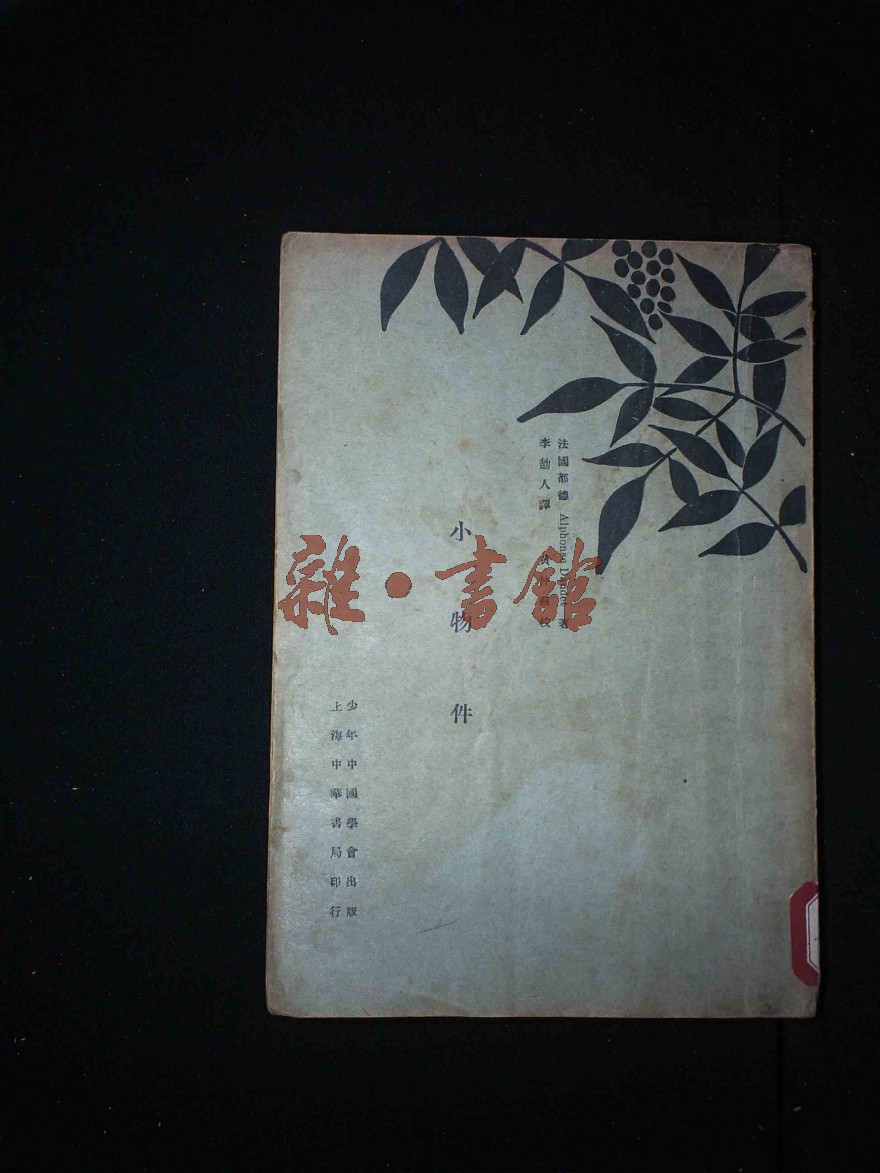 法國都德 Alphonse Daudet 著
李劼人譯 校
小物件
少年中國學會出版
上海中華書局印行
雜·書館